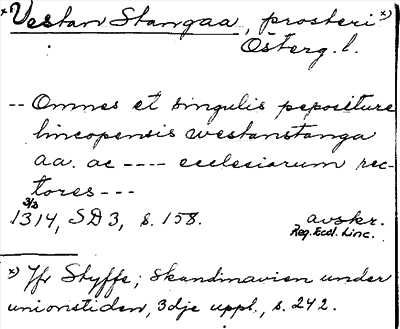 x) Vestan Stangaa, prosteri x)
Österg. l.
-- Omnes et singulis pepositure
lincopensis westanstanga
aa. ac ---- ecclesiarum rec-
tores ---
3/3
1314, SD 3, s. 158. avskr.
Reg. Eccl. Linc.
x) Jfr Styffe, Skandinavien under
unionstiden, 3dje uppl., s. 242.